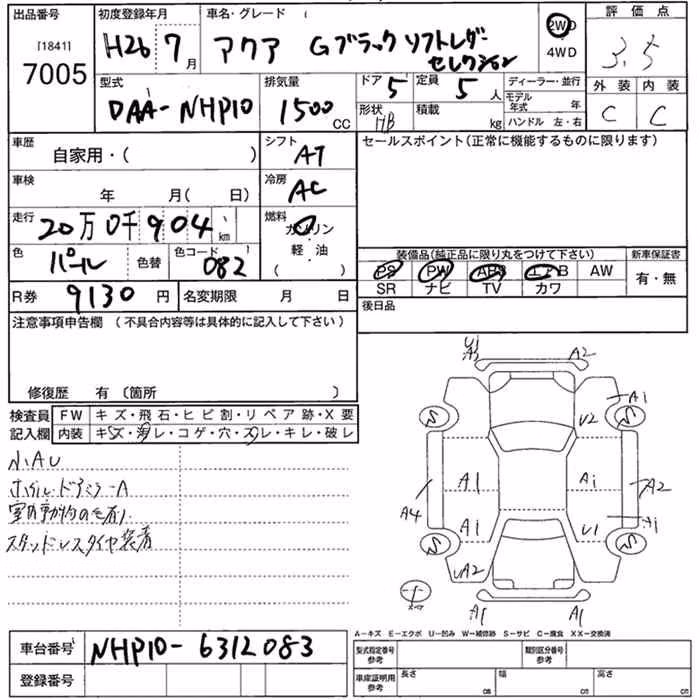 出品番号
[1841]
7005
初度登録年月
H26 7月
車名・グレード
アクア Gブラック ソフトレザー
セレクション
2WD
4WD
評価点
3.5
外装 内装
C C
型式
DAA-NHP10
排気量
1500
CC
ドア 5
定員 5人
形状 HB
積載 kg
ディーラー・並行
モデル年式 年
ハンドル 左・右
車歴
自家用・( )
シフト
AT
車検
年 月( 日)
冷房
AC
走行
20万0千904
km
燃料
ガソリン
・
軽油
( )
色
パール
色替
色コード
082
R券
9130円
名変期限 月 日
セールスポイント(正常に機能するものに限ります)
装備品(純正品に限り丸をつけて下さい)
新車保証書
PS PW ABS エアB AW
SR ナビ TV カワ
有・無
後日品
注意事項申告欄 (不具合内容等は具体的に記入して下さい)
修復歴 有〔箇所 〕
検査員記入欄
FW キズ・飛石・ヒビ割・リペア跡・X要
内装 キズ・汚レ・コゲ・穴・スレ・キレ・破レ
小AU
室内動物の毛有り
スタッドレスタイヤ装着
A2
A1
S
S
U2
A1
A1
A2
A4
A1
U1
A1
S
S
UA2
A1
A1
A-キズ E-エクボ U-凹み W-補修跡 S-サビ C-腐食 XX-交換済
車台番号
NHP10-6312083
登録番号
型式指定番号
参考
類別区分番号
参考
車庫証明用
参考
長さ cm
幅 cm
高さ cm